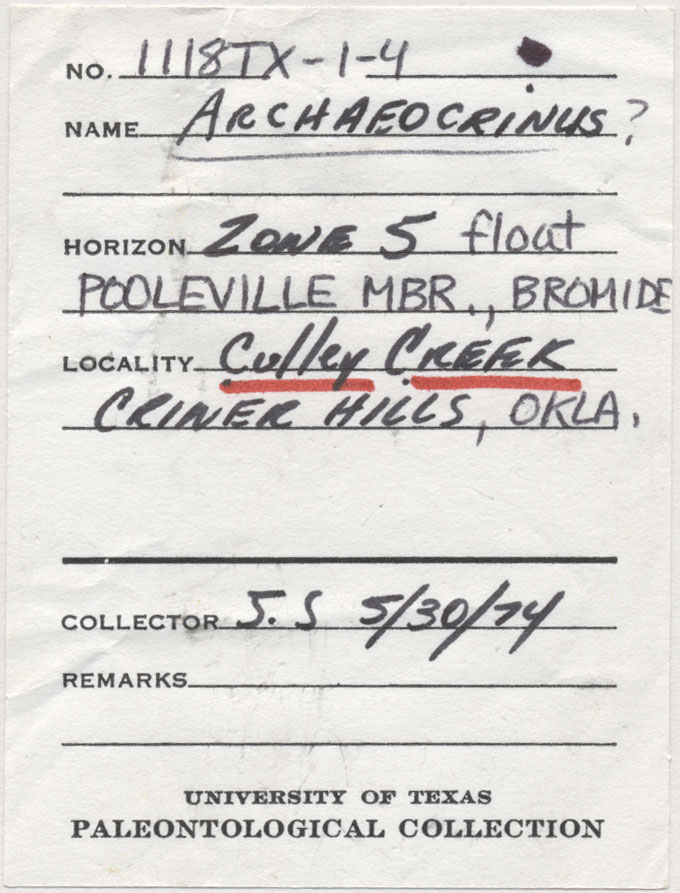 NO. 1118TX-1-4
NAME ARCHAEOCRINUS?
HORIZON ZONE 5 float
POOLEVILLE MBR., BROMIDE
LOCALITY Culley CREEK
CRINER HILLS, OKLA.
COLLECTOR J.S 5/30/74
REMARKS
UNIVERSITY OF TEXAS
PALEONTOLOGICAL COLLECTION